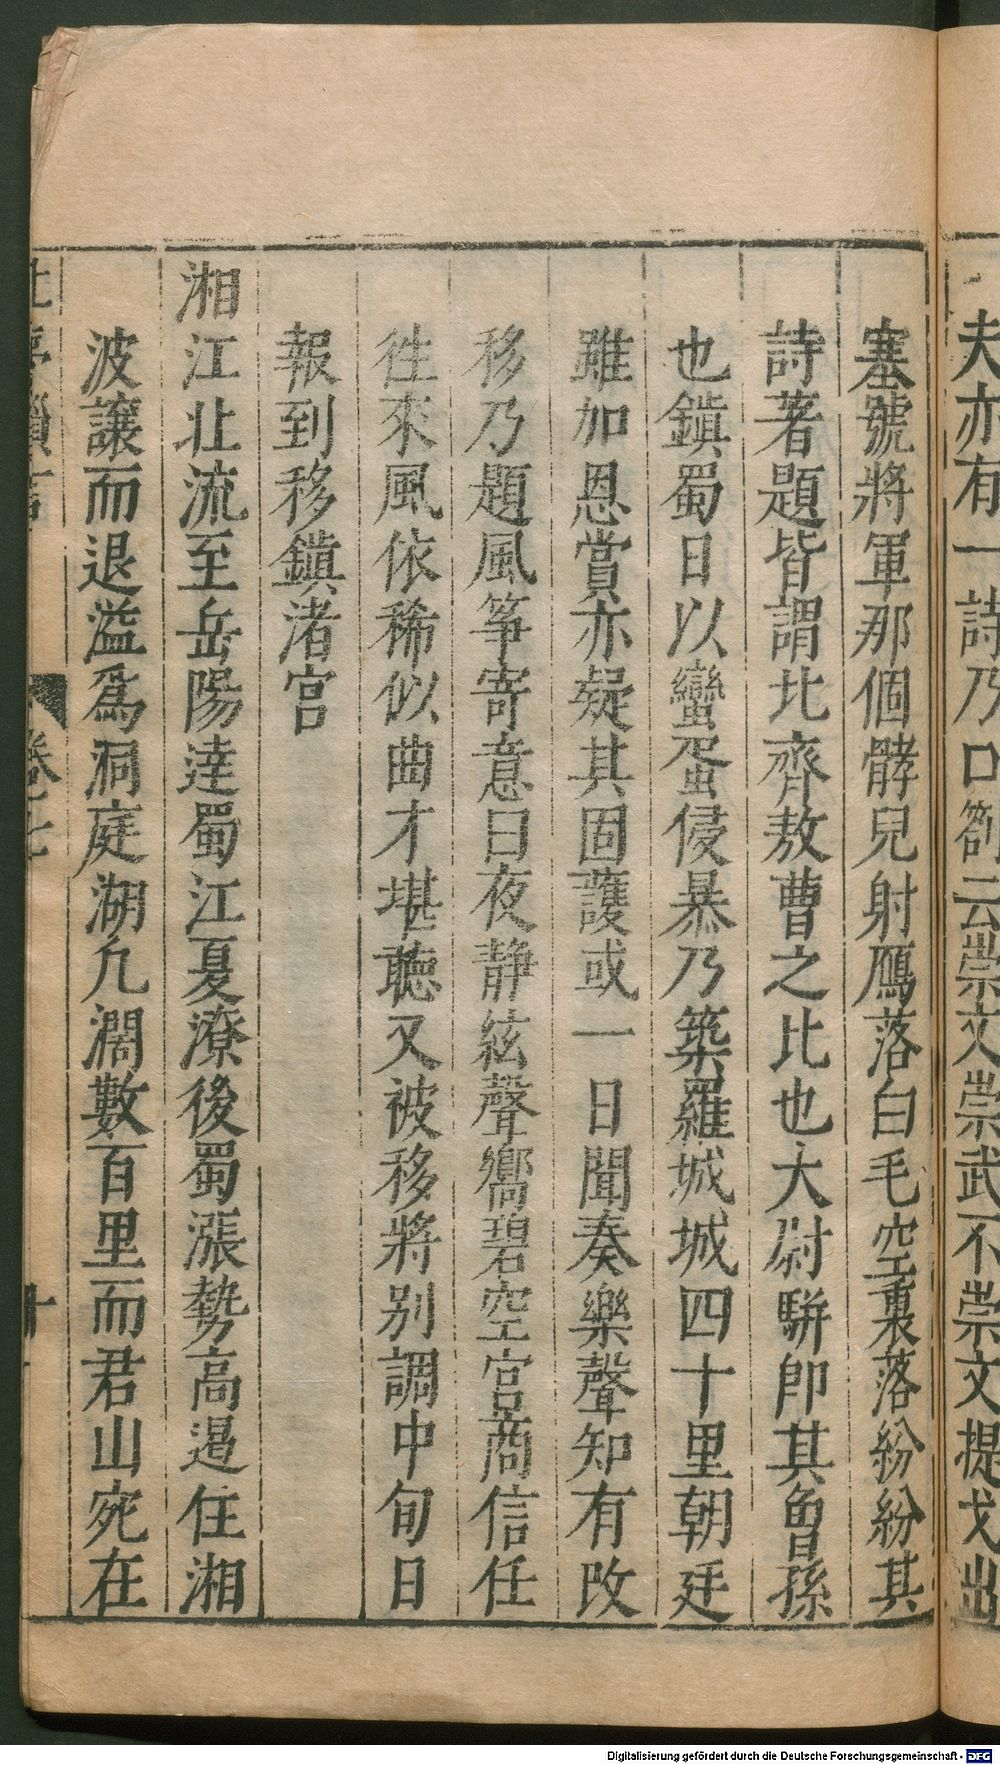 夫亦有一詩乃口劄云崇文崇武不崇文提戈出
塞號將軍那個髇兒射鴈落白毛空裏落紛紛其
詩著題皆謂北齊敖曹之比也大尉駢即其曾孫
也鎮蜀日以蠻蜑侵暴乃築羅城城四十里朝廷
雖加恩賞亦疑其固護或一日聞奏樂聲知有改
移乃題風筝寄意曰夜静絃聲嚮碧空宫商信任
徃來風依稀似曲才堪聽又被移將别調中旬日
報到移鎮渚宫
湘江北流至岳陽逹蜀江夏潦後蜀漲勢高遏住湘
波讓而退溢爲洞庭湖凢濶數百里而君山宛在
卷七
Digitalisierung gefördert durch die Deutsche Forschungsgemeinschaft - DFG